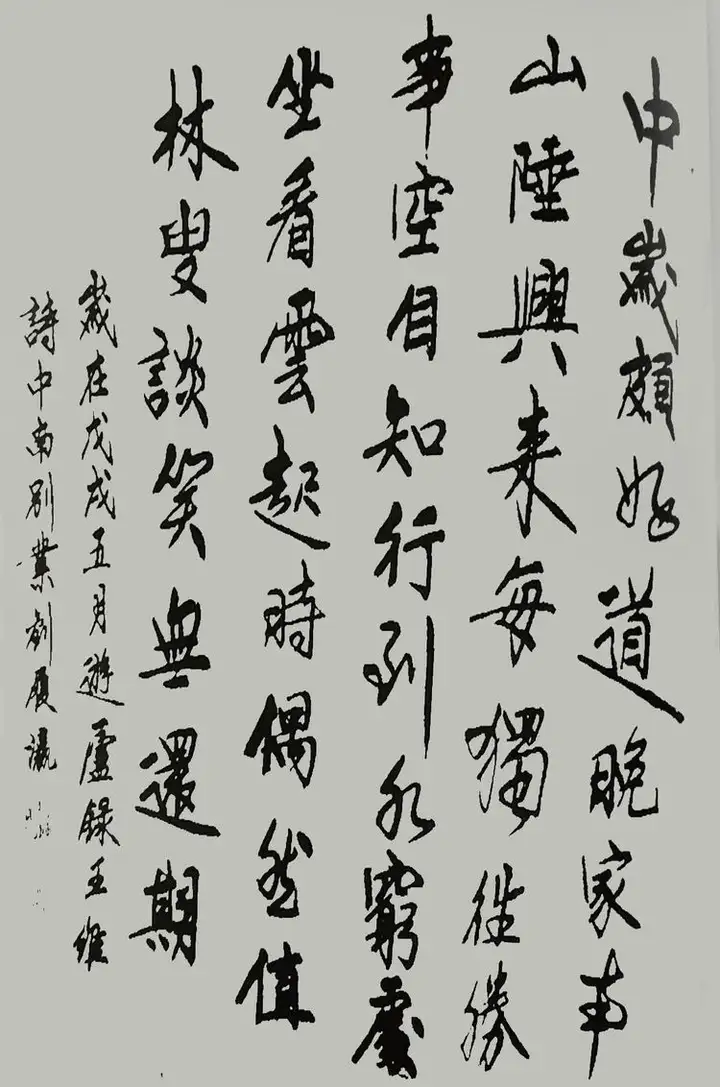 中歲頗好道晚家南
山陲興來每獨往勝
事空自知行到水窮處
坐看雲起時偶然值
林叟談笑無還期
歲在戊戌五月遊廬錄王維
詩中南別業劉